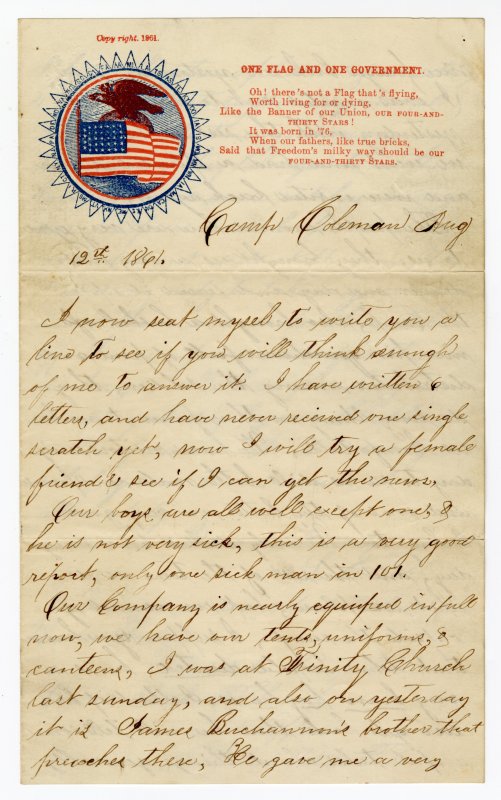 Copy right. 1861.
ONE FLAG AND ONE GOVERNMENT.
Oh! there's not a Flag that's flying,
Worth living for or dying,
Like the Banner of our Union, OUR FOUR-AND-
THIRTY STARS!
It was born in '76,
When our fathers, like true bricks,
Said that Freedom's milky way should be our
FOUR-AND-THIRTY STARS.
Camp Coleman Aug
12th 1861.
I now seat myself to write you a
line to see if you will think enough
of me to answer it. I have written 6
letters, and have never received one single
scratch yet, now I will try a female
friend & see if I can get the news.
Our boys are all well except one, &
he is not very sick, this is a very good
report, only one sick man in 101.
Our Company is nearly equiped in full
now, we have our tents, uniforms, &
canteens, I was at Trinity Church
last sunday, and also on yesterday
it is James Buchannon's brother that
preaches there, He gave me a very